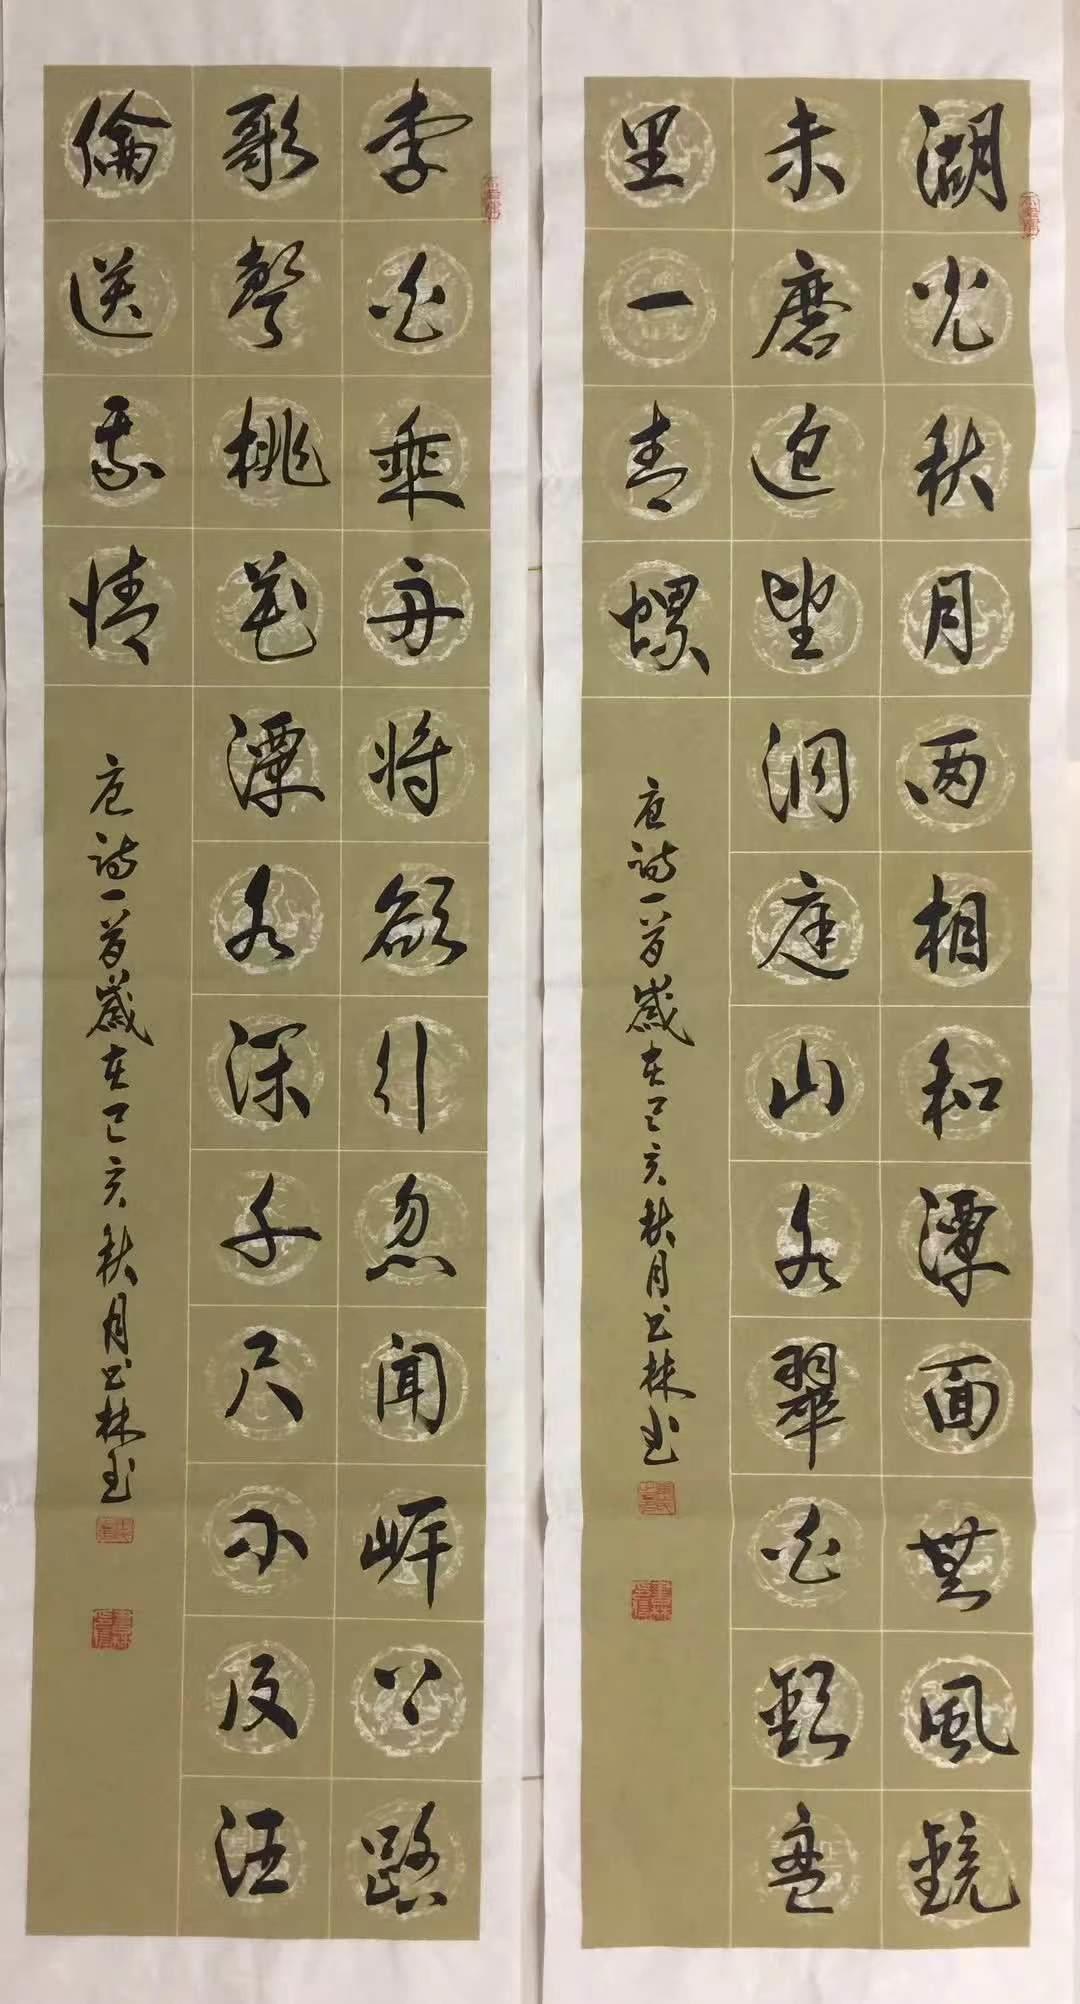 湖光秋月两相和潭面無風鏡
未磨遥望洞庭山水翠白銀盘
里一青螺
唐诗一首歲在己亥秋月书林
李白乘舟将欲行忽闻岸上踏
歌聲桃花潭水深千尺不及汪
倫送我情
唐诗一首歲在己亥秋月书林